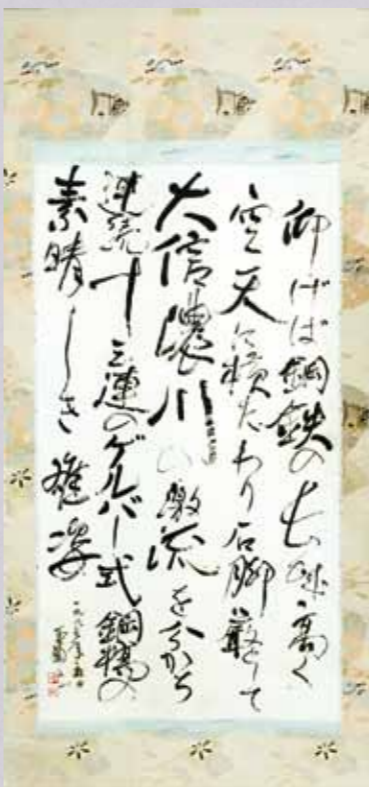 仰げば鋼鉄の長蛇高く
空天に横たわり石脚厳として
大信濃川の激流を分かち
連続十三連のゲルバー式鋼橋の
素晴しき雄姿